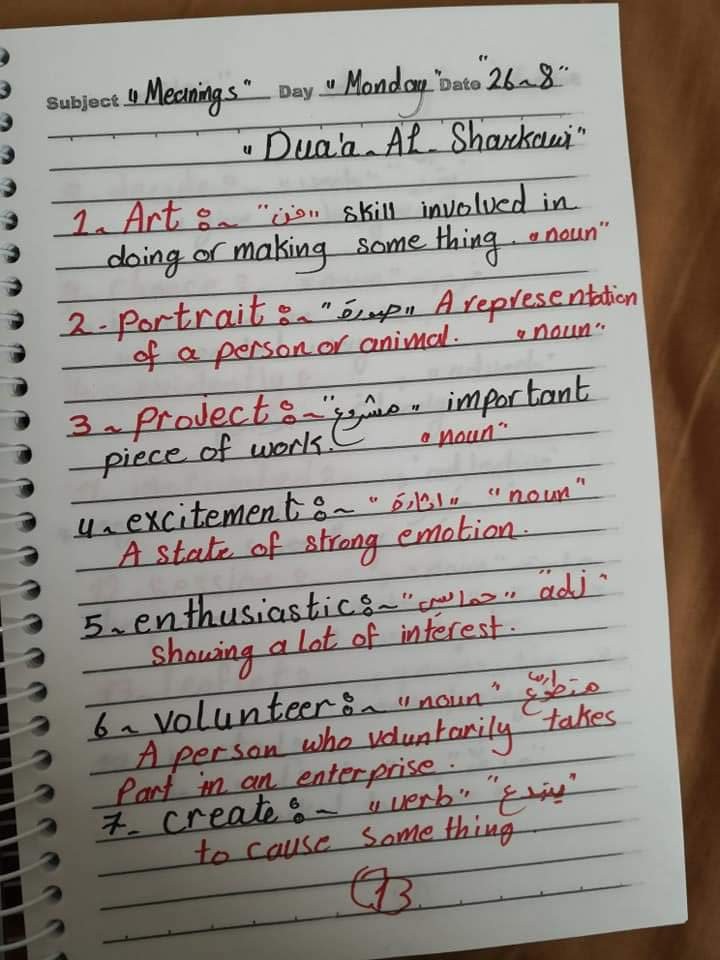 Subject "Meanings" Day "Monday" Date "26~8"
"Dua'a-Al-Sharkawi"
1~ Art :~ "فن" skill involved in
doing or making some thing. "noun"
2- portrait :~ "صورة" A representation
of a person or animal. "noun"
3~ project :~ "مشروع" important
piece of work. "noun"
4~ excitement :~ "اثارة" "noun"
A state of strong emotion.
5~ enthusiastic :~ "حماسي" adj
showing a lot of interest.
6~ volunteer :~ "noun" متطوع
A person who voluntarily takes
part in an enterprise.
7- create :~ "verb" "يبتدع"
to cause some thing.
13